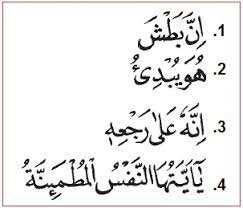 1. اِنَّ بَطْشَ
2. هُوَ يُبْدِئُ
3. اِنَّهٗ عَلٰى رَجْعِهٖ
4. يٰٓاَيَّتُهَا النَّفْسُ الْمُطْمَئِنَّةُ